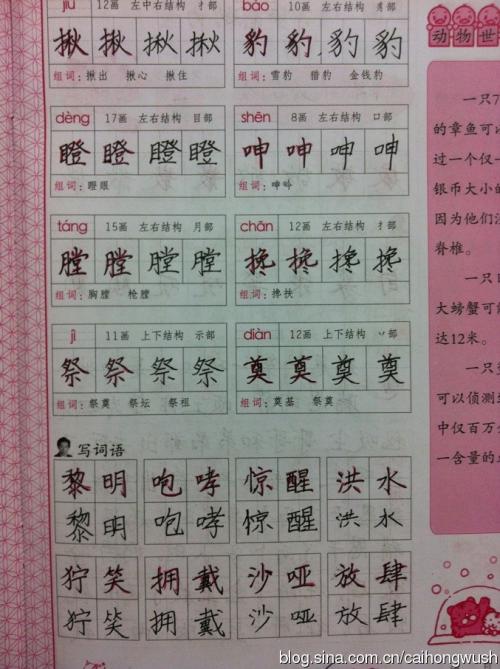 jiū 12画 左中右结构 扌部
揪 揪 揪 揪
组词：揪出 揪心 揪住
bào 10画 左右结构 豸部
豹 豹 豹 豹
组词：雪豹 猎豹 金钱豹
dèng 17画 左右结构 目部
瞪 瞪 瞪 瞪
组词：瞪眼
shēn 8画 左右结构 口部
呻 呻 呻 呻
组词：呻吟
táng 15画 左右结构 月部
膛 膛 膛 膛
组词：胸膛 枪膛
chān 12画 左右结构 扌部
搀 搀 搀 搀
组词：搀扶
jì 11画 上下结构 示部
祭 祭 祭 祭
组词：祭奠 祭坛 祭祖
diàn 12画 上下结构 丷部
奠 奠 奠 奠
组词：奠基 祭奠
写词语
黎明 咆哮 惊醒 洪水
黎明 咆哮 惊醒 洪水
狞笑 拥戴 沙哑 放肆
狞笑 拥戴 沙哑 放肆
动物世
一只7
的章鱼可以
过一个仅一
银币大小的
因为他们没
脊椎。
一只日
大螃蟹可能
达12米。
一只
可以侦测到
中仅百万分
一含量的
blog.sina.com.cn/caihongwush